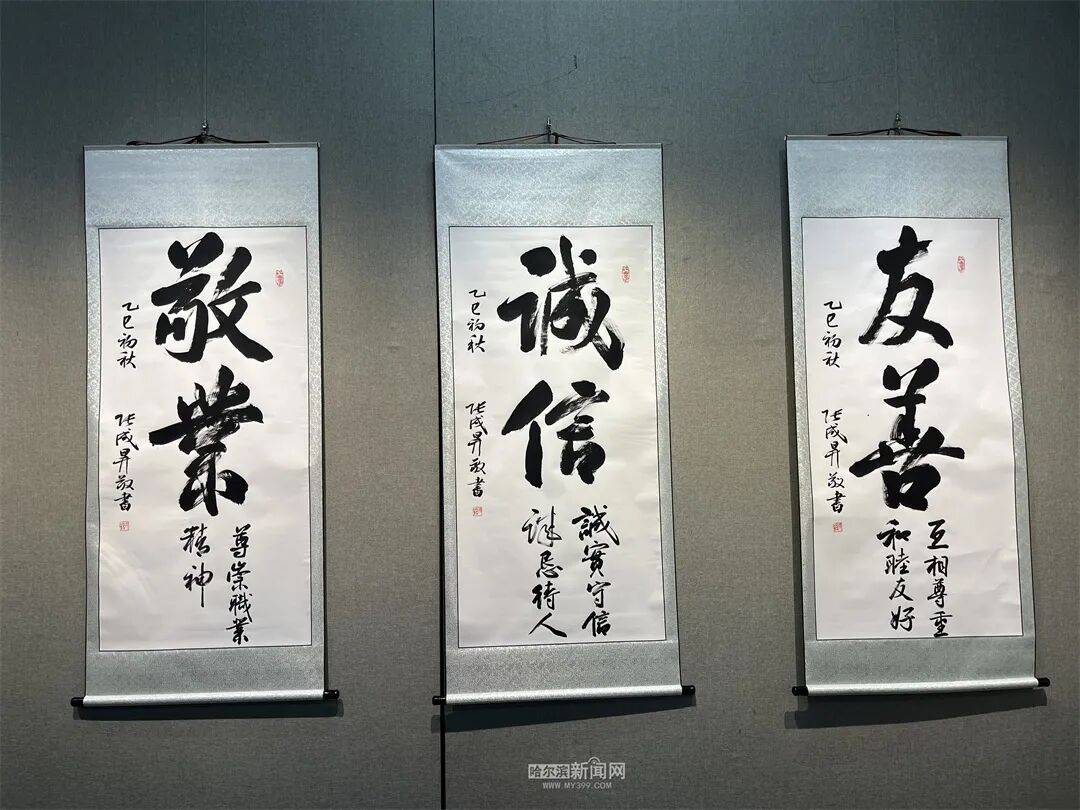 敬業
尊崇職業
精神
乙巳初秋
张成昇敬書
诚信
誠實守信
诚恳待人
乙巳初秋
张成昇敬書
友善
互相尊重
和睦友好
乙巳初秋
张成昇敬書
哈尔滨新闻网
WWW.MY399.COM